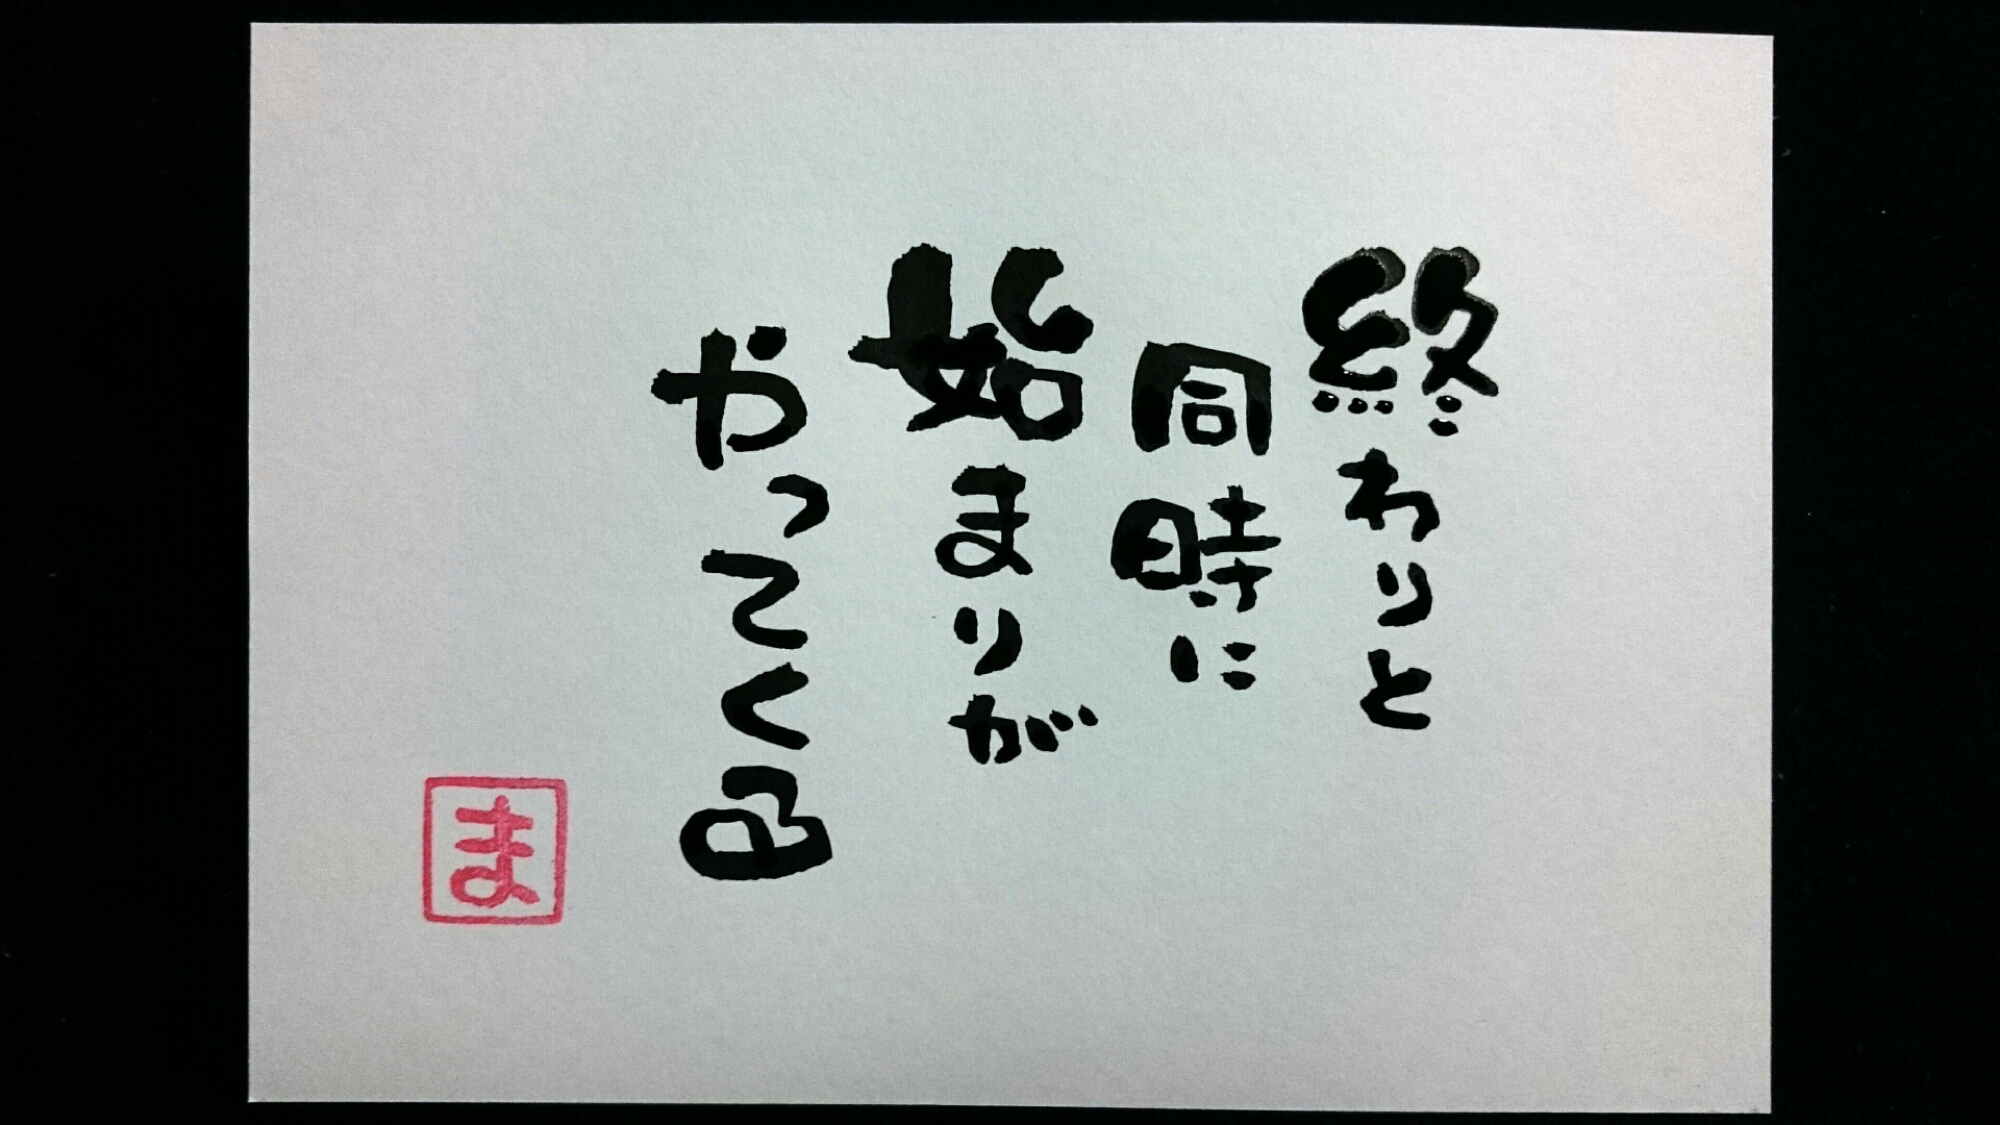 終わりと
同時に
始まりが
やってくる
ま